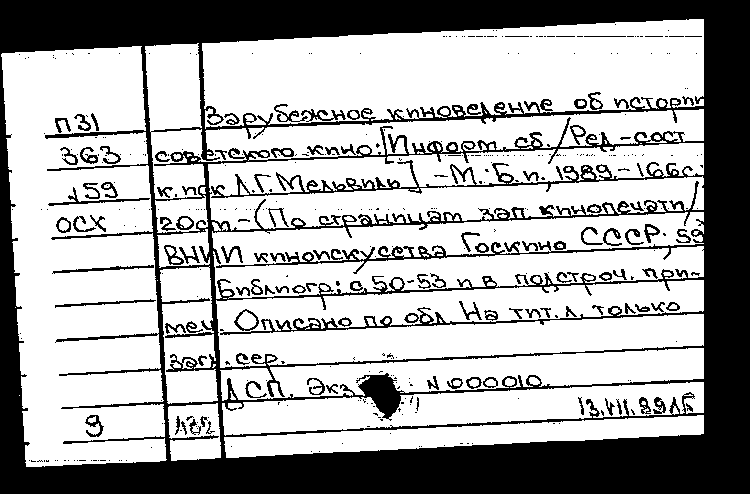 П31 Зарубежное киноведение об истории
363 советского кино: [Информ. сб. / Ред.-сост
159 к. иск Л.Г. Мельвиль]. - М.: Б.и., 1989. - 166 с.;
ОСХ 20 см. - (По страницам зап. кинопечати /
ВНИИ киноискусства Госкино СССР; 59
Библиогр.: с. 50-53 и в подстроч. при-
меч. Описано по обл. На тит. л. только
загл. сер.
ДСП. Экз. N 000010.
9 132 13.VII.89